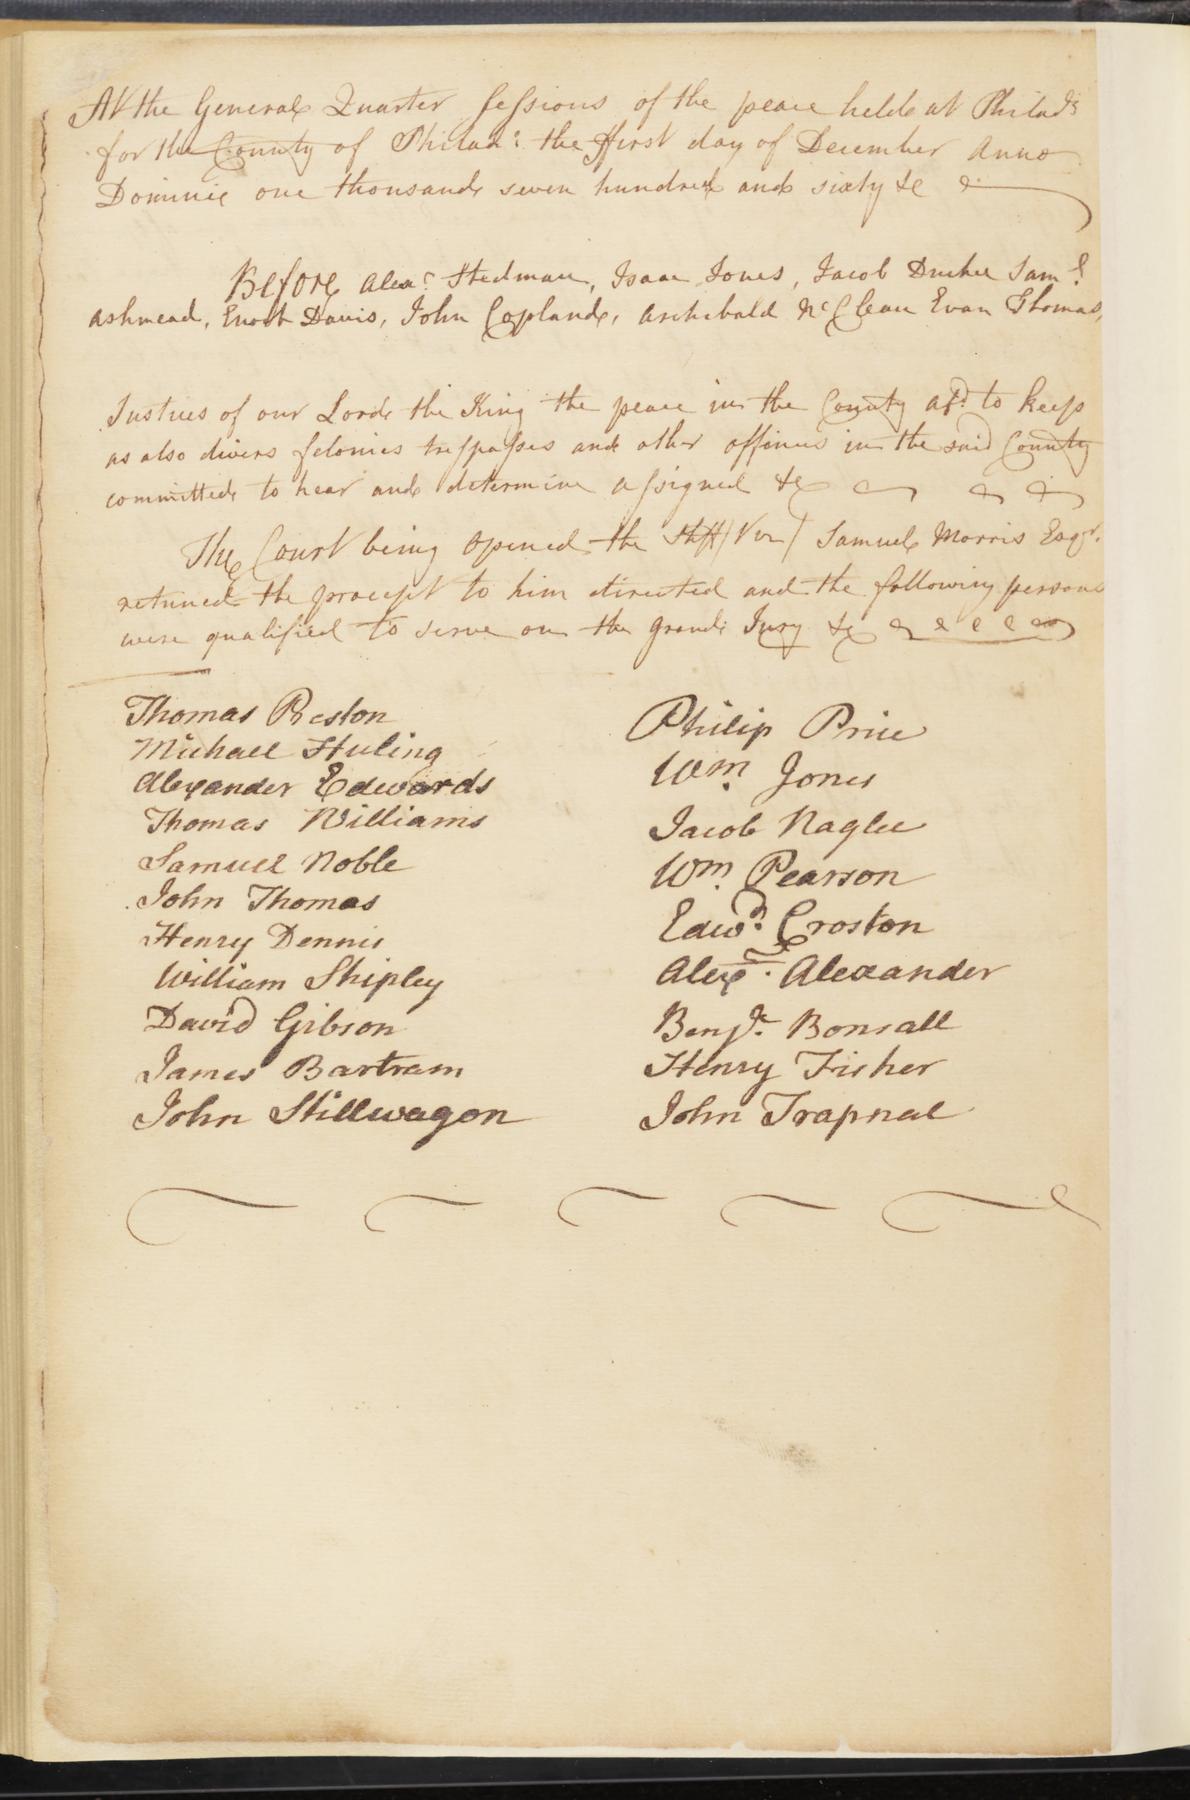 At the General Quarter Sessions of the peace held at Philada:
for the County of Philada: the ffirst day of December Anno
Dominie one thousand seven hundred and sixty &c
Before Alexr. Stedman, Isaac Jones, Jacob Duchee Saml.
Ashmead, Enoch Davis, John Copland, Archibald McClean Evan Thomas,
Justices of our Lord the King the peace in the County afd. to keep
as also divers felonies trespasses and other offences in the said County
committed to hear and determine assigned &c
The Court being opened the Shff (Viz) Samuel Morris Esqr.
returned the precept to him directed and the following persons
were qualified to serve on the Grand Jury &c
Thomas Reston
Michael Huling
Alexander Edwards
Thomas Williams
Samuel Noble
John Thomas
Henry Dennis
William Shipley
David Gibson
James Bartram
John Stillwagon
Philip Price
Wm. Jones
Jacob Naglee
Wm. Pearson
Edwd. Croston
Alexr. Alexander
Benja. Bonsall
Henry Fisher
John Trapnal